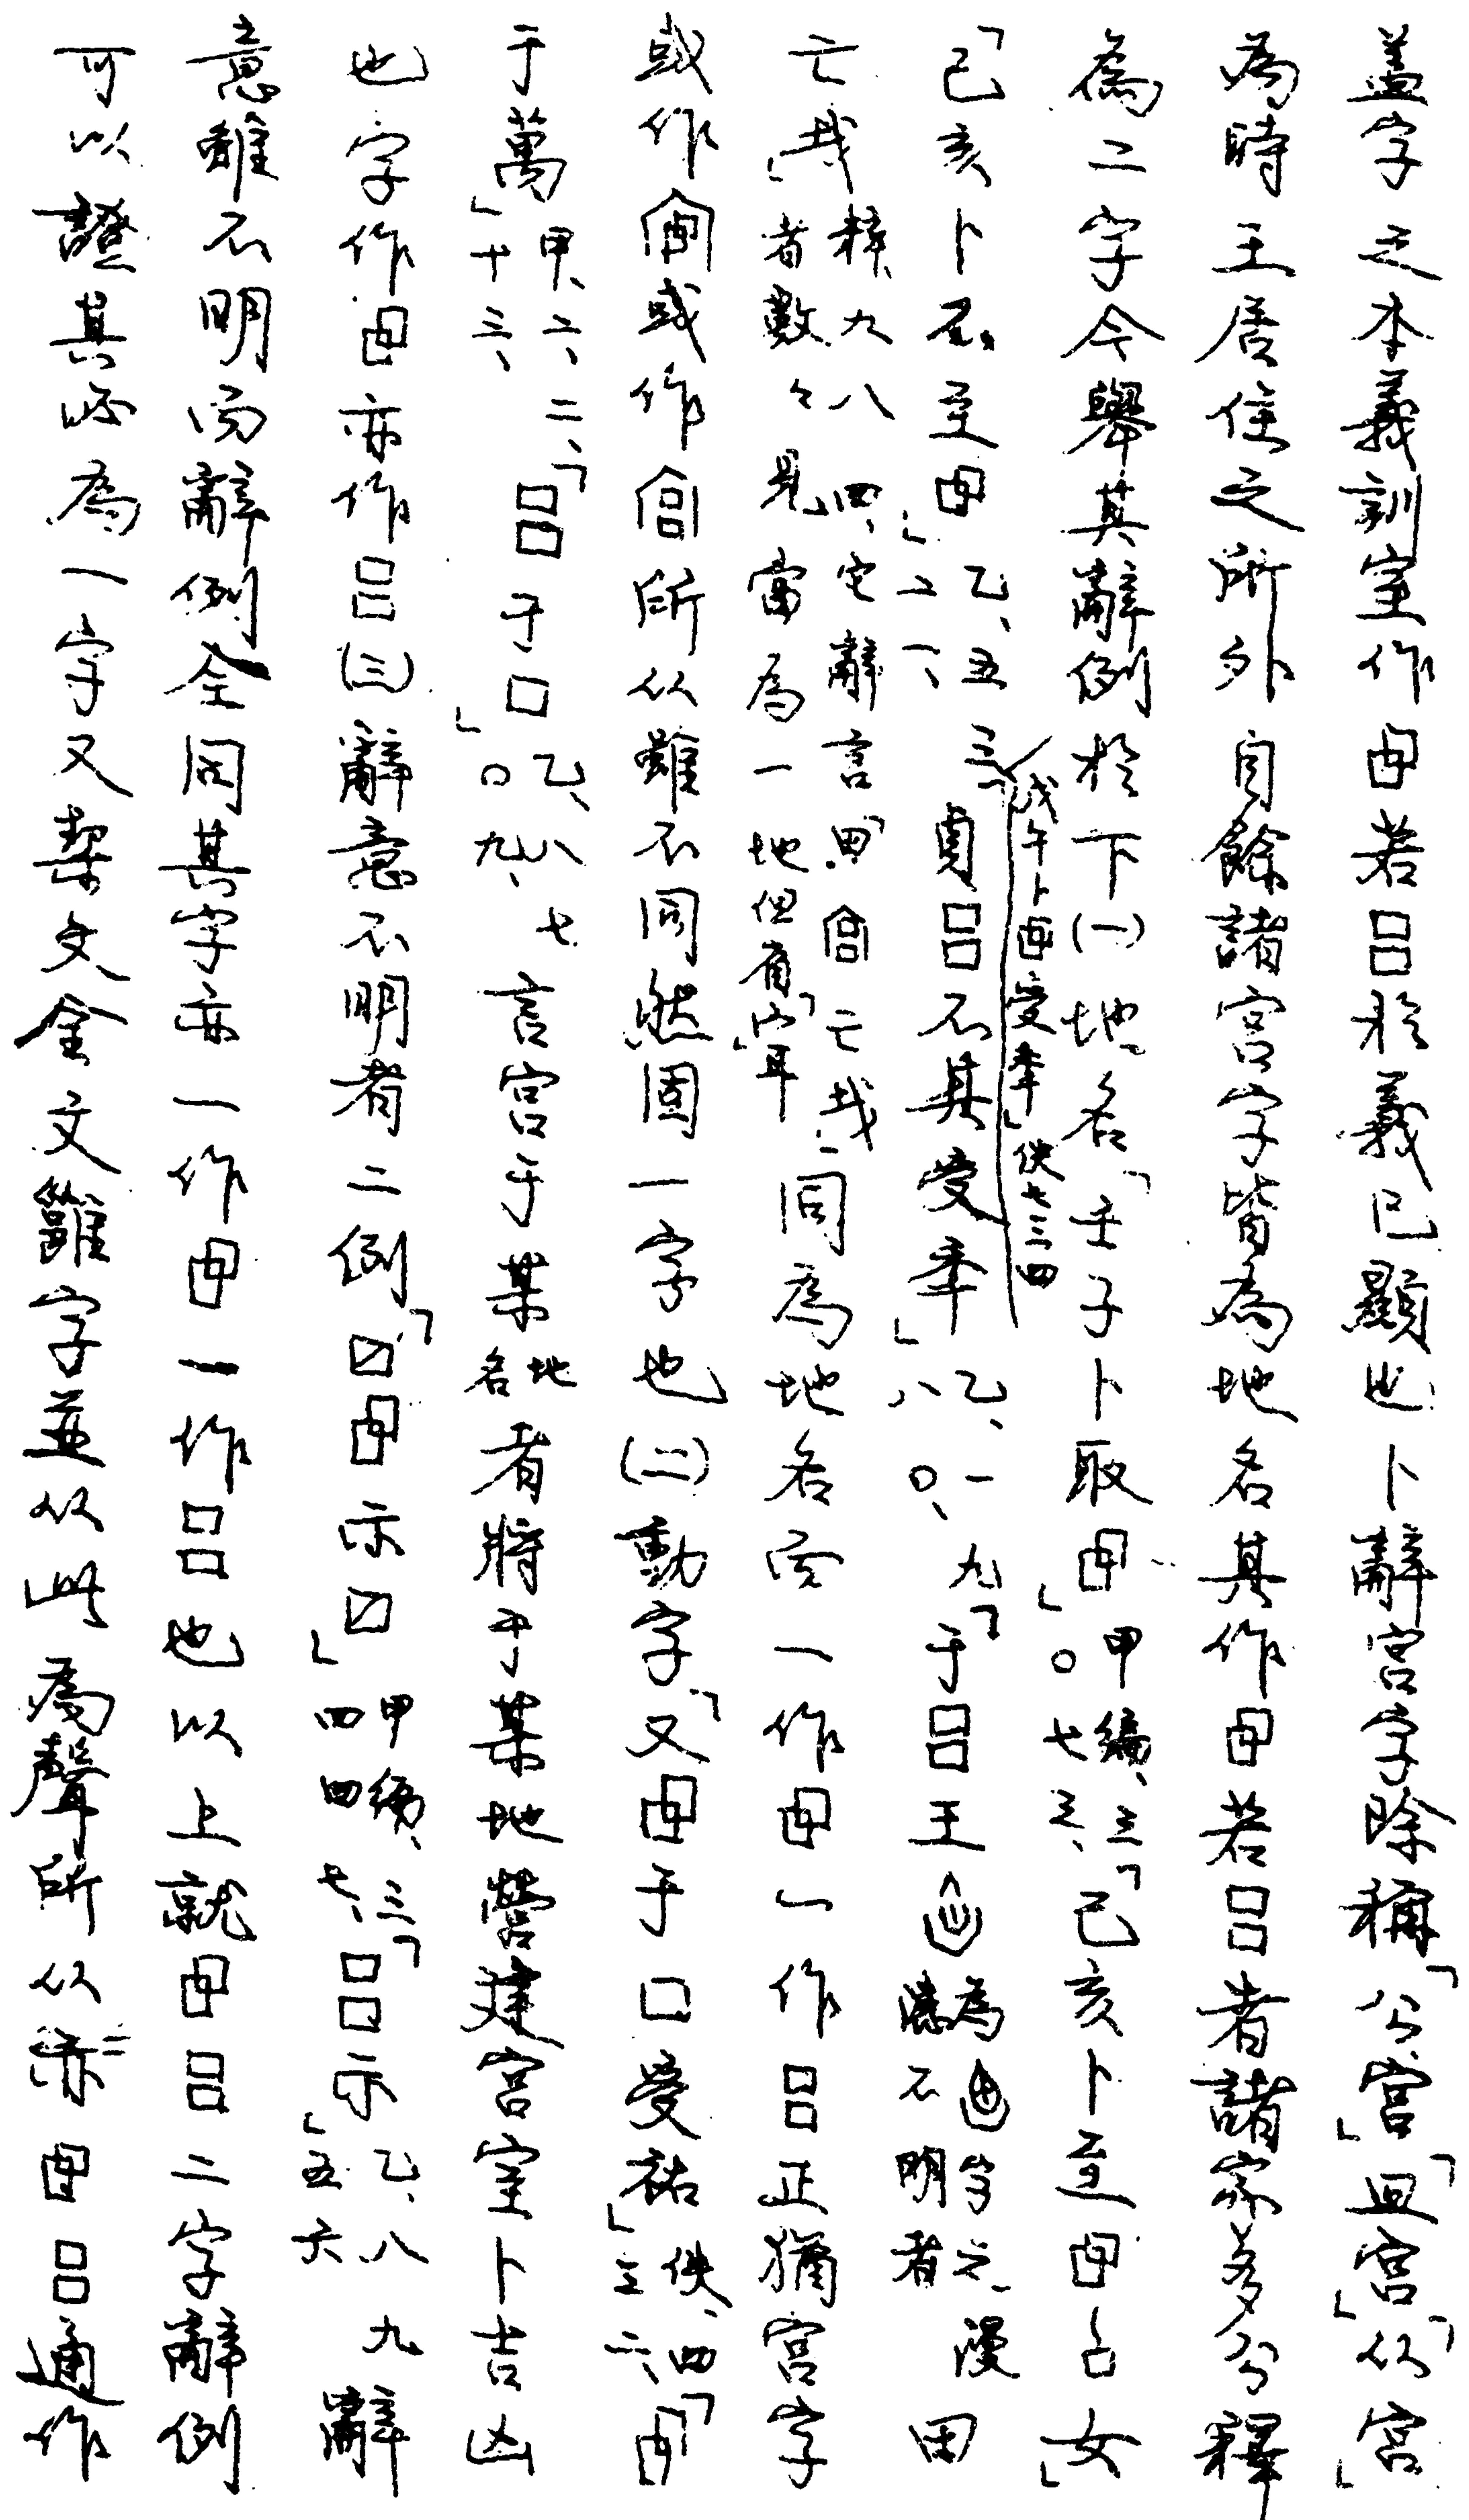 蓋字之本義訓室作𠱠若吕於義已顯也卜辭宮字除稱「公宮」「皿宮」「从宮」
為時王居住之所外自餘諸宮字皆為地名其作𠱠若吕者諸家多分釋
為二字今舉其辭例於下(一)地名「壬子卜取𠱠」甲編、三〇七三、「己亥卜至𠱠占女」
「己亥卜不至𠱠」乙、五三二一、「戊午卜𠱠受年」佚七三四「貞吕不其受年」乙、一九八〇、「于吕王 為 字之漫漶不明者田
亡𢦏」粹、九八四、它辭言「田宮亡𢦏」者數々見當為一地但有「宀」耳同為地名而一作𠱠一作吕正猶宮字
或作 或作 所从雖不同然固一字也(二)動字「又𠱠于口受祐」佚、四三六、「𠱠
于萬」甲、六二二、十三、「吕于口」乙、八七〇九、言宮于某地名者將于某地營建宮室卜吉凶
也字作𠱠亦作吕(三)辭意不明者二例「〼𠱠示〼」甲編、三四四七、「吕示」乙、八九五六辭
意雖不明而辭例全同其字亦一作𠱠一作吕也以上就𠱠吕二字辭例
可以證其必為一字又栔文金文雝字並从此為聲所从亦𠱠吕通作